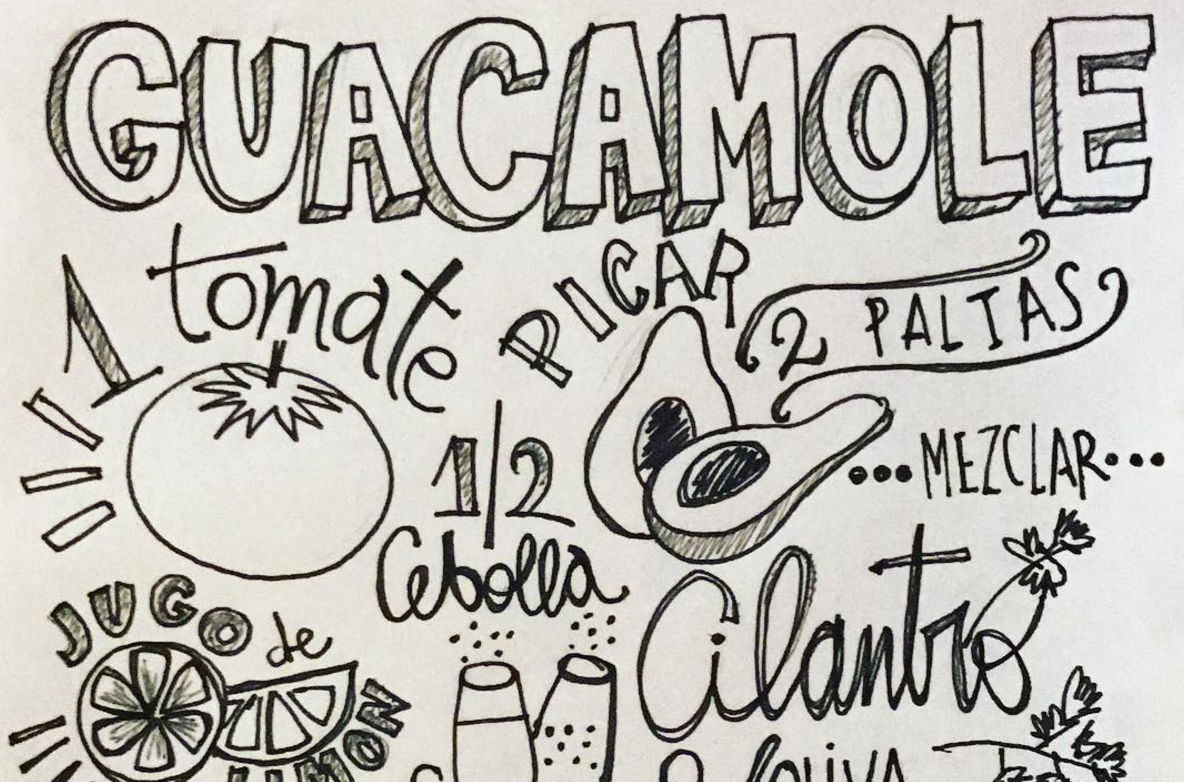 GUACAMOLE
1 tomate
PICAR
2 PALTAS
1/2
Cebolla
...MEZCLAR...
JUGO de
LIMON
Cilantro